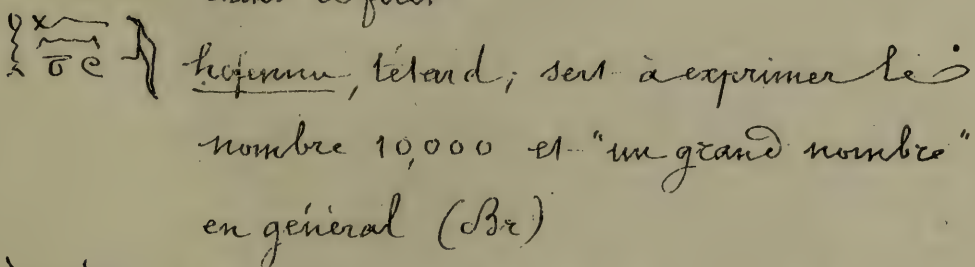 hefennu, têtard; sert à exprimer le
nombre 10,000 et "un grand nombre"
en général (Br)